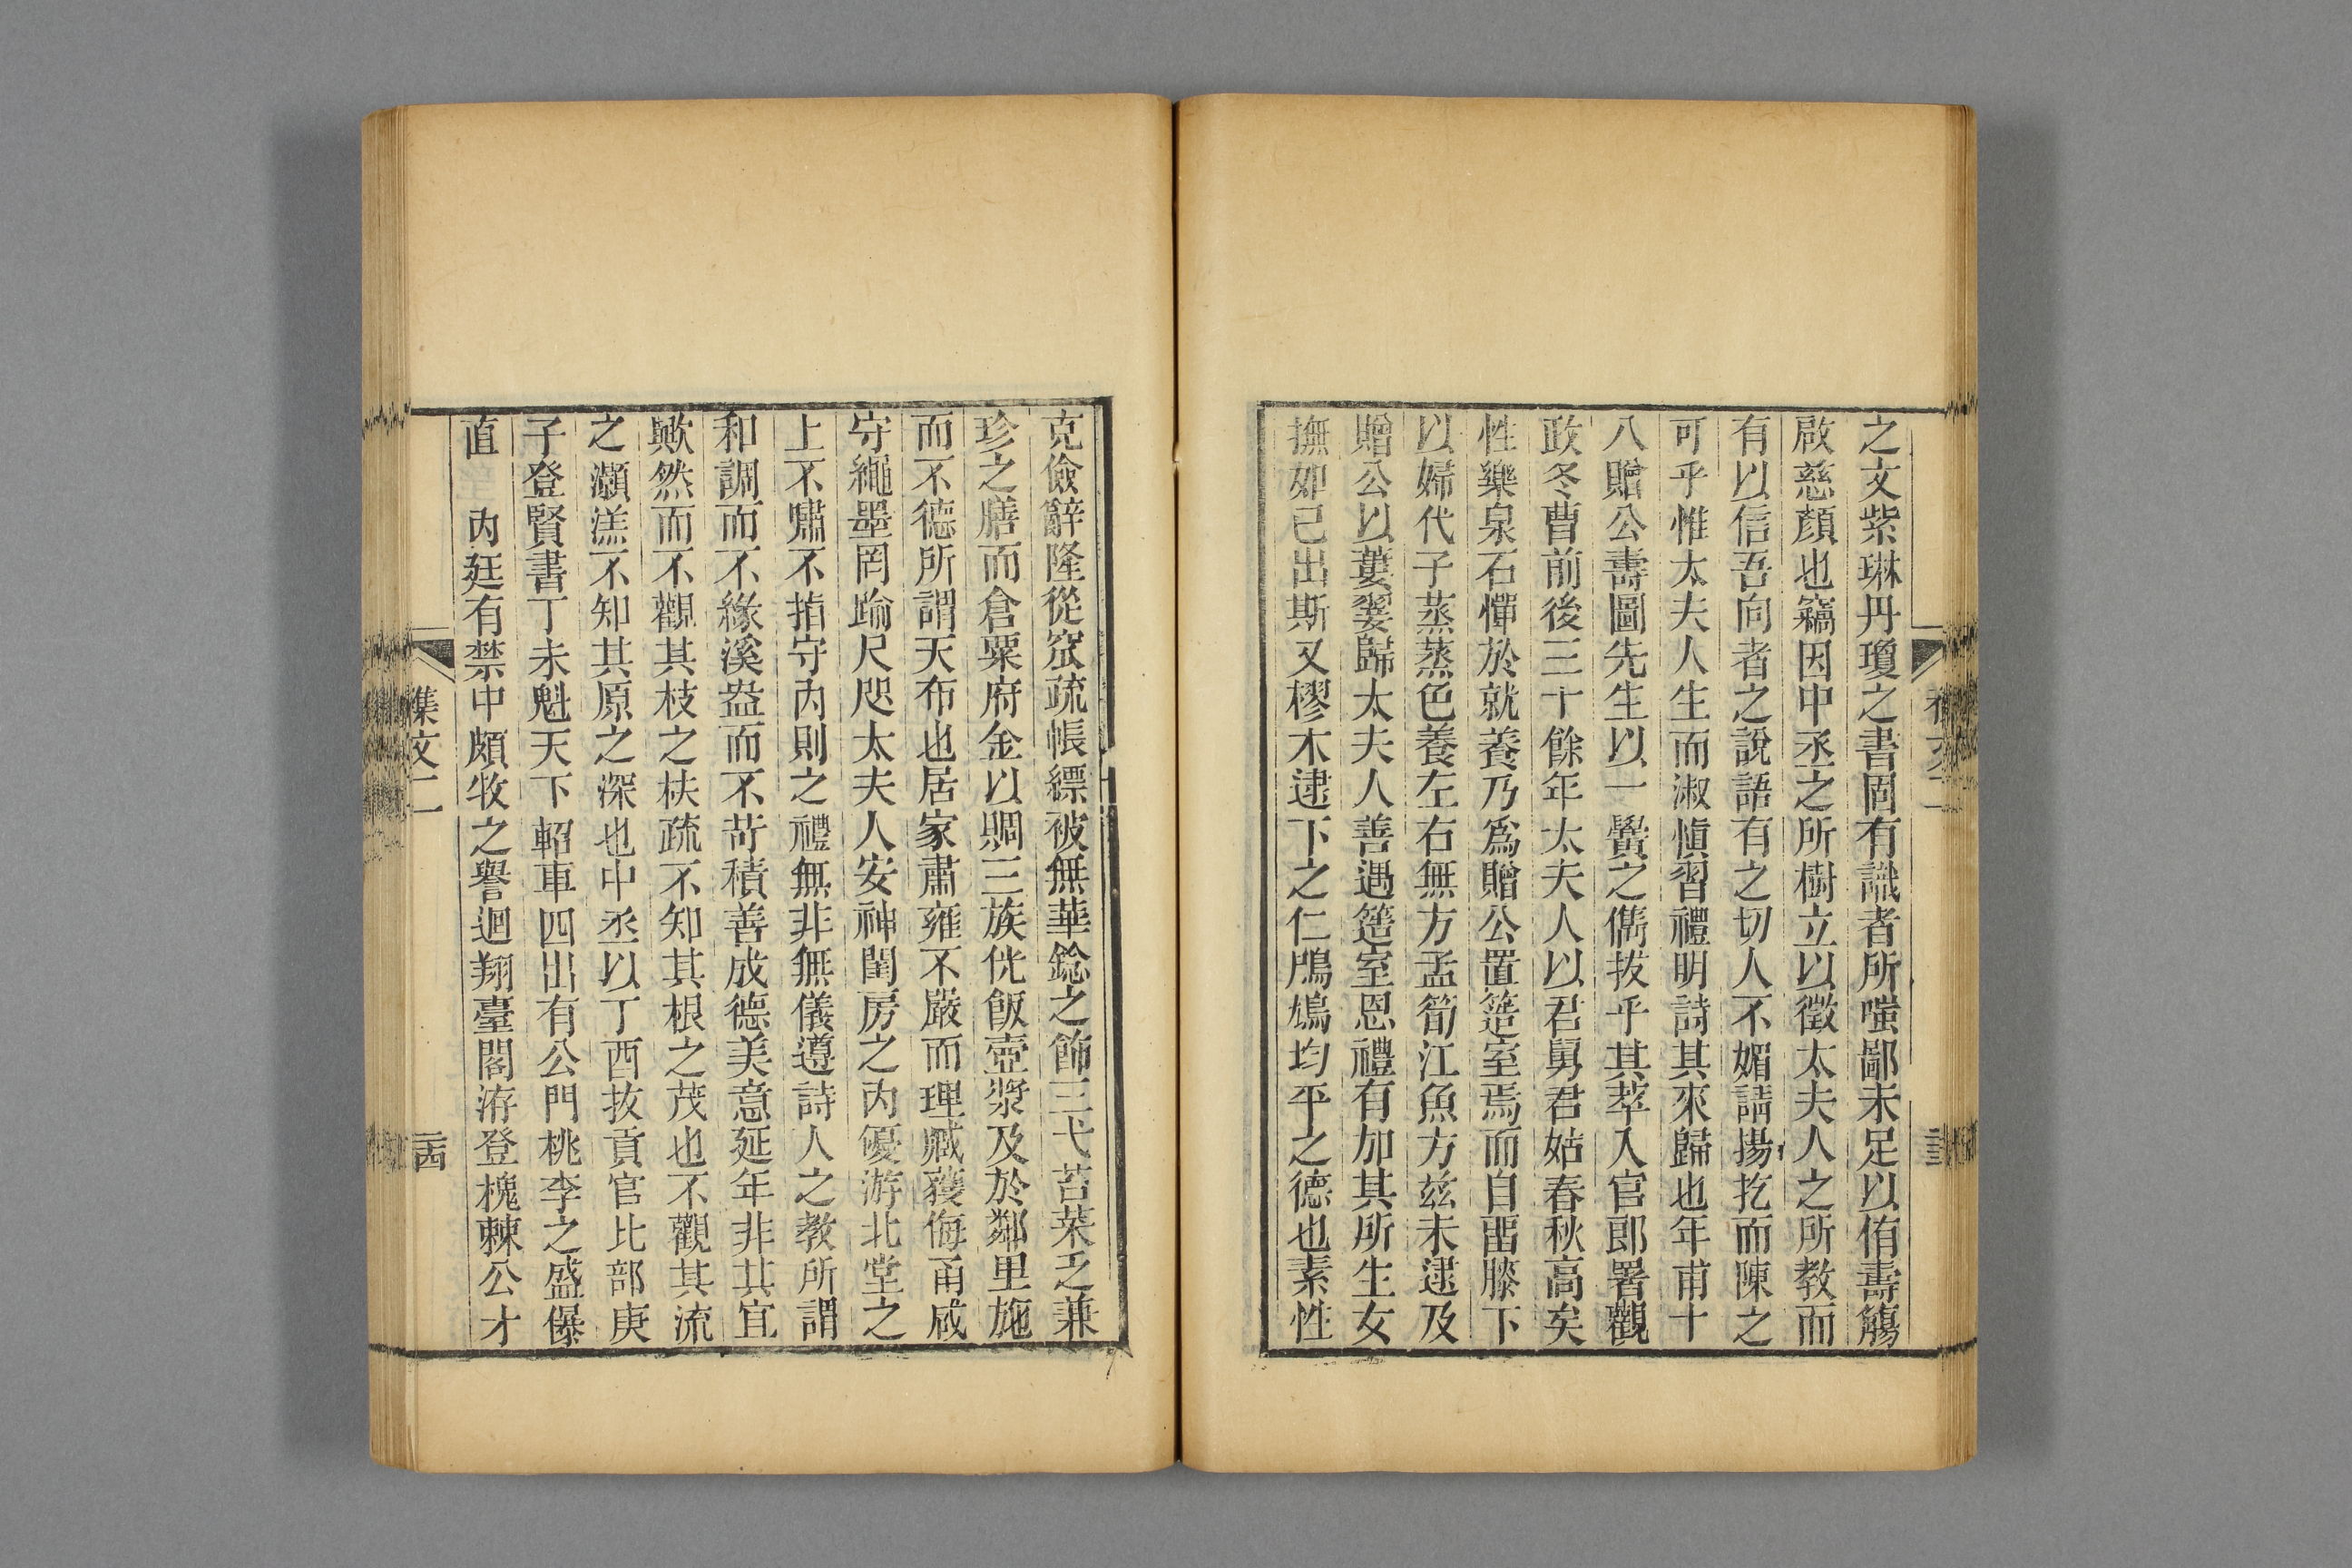 之文紫琳丹瓊之書罔有識者所嗤鄙未足以侑壽觴
啟慈顏也竊因中丞之所樹立以徵太夫人之所教而
有以信吾向者之說語有之切人不媚請揚扢而陳之
可乎惟太夫人生而淑慎習禮明詩其來歸也年甫十
八贈公壽圖先生以一黌之儁拔乎其萃入官郎署觀
政冬曹前後三十餘年太夫人以君舅君姑春秋高矣
性樂泉石憚於就養乃爲贈公置簉室焉而自畱膝下
以婦代子蒸蒸色養左右無方孟筍江魚方兹未逮及
贈公以蔞翣歸太夫人善遇簉室恩禮有加其所生女
撫如己出斯又樛木逮下之仁鳲鳩均平之德也素性
克儉辭隆從窊疏帳縹被無華錜之飾三弋苦菜乏兼
珍之膳而倉粟府金以賙三族侊飯壺漿及於鄰里施
而不德所謂天布也居家肅雍不嚴而理臧獲侮甬咸
守繩墨罔踰尺咫太夫人安神閨房之內優游北堂之
上不嘯不指守內則之禮無非無儀遵詩人之教所謂
和調而不緣溪盎而不苛積善成德美意延年非其宜
歟然而不觀其枝之扶疏不知其根之茂也不觀其流
之灝溔不知其原之深也中丞以丁酉拔貢官比部庚
子登賢書丁未魁天下軺車四出有公門桃李之盛儤
直　內廷有禁中頗牧之譽迴翔臺閣洊登槐棘公才
集文二